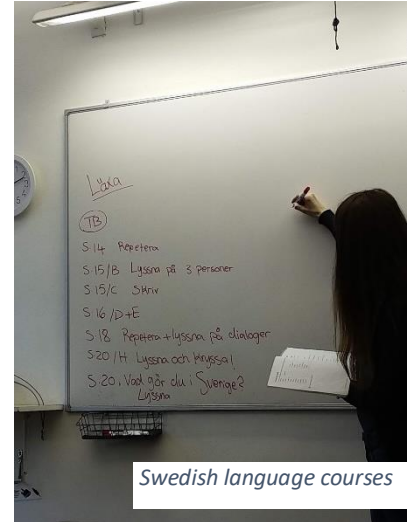 Läxa
TB
S.14 Repetera
S.15/B Lyssna på 3 personer
S.15/C Skriv
S.16/D+E
S.18 Repetera + lyssna på dialoger
S.20/H Lyssna och kryssa!
S.20, Vad gör du i Sverige?
Lyssna
Swedish language courses